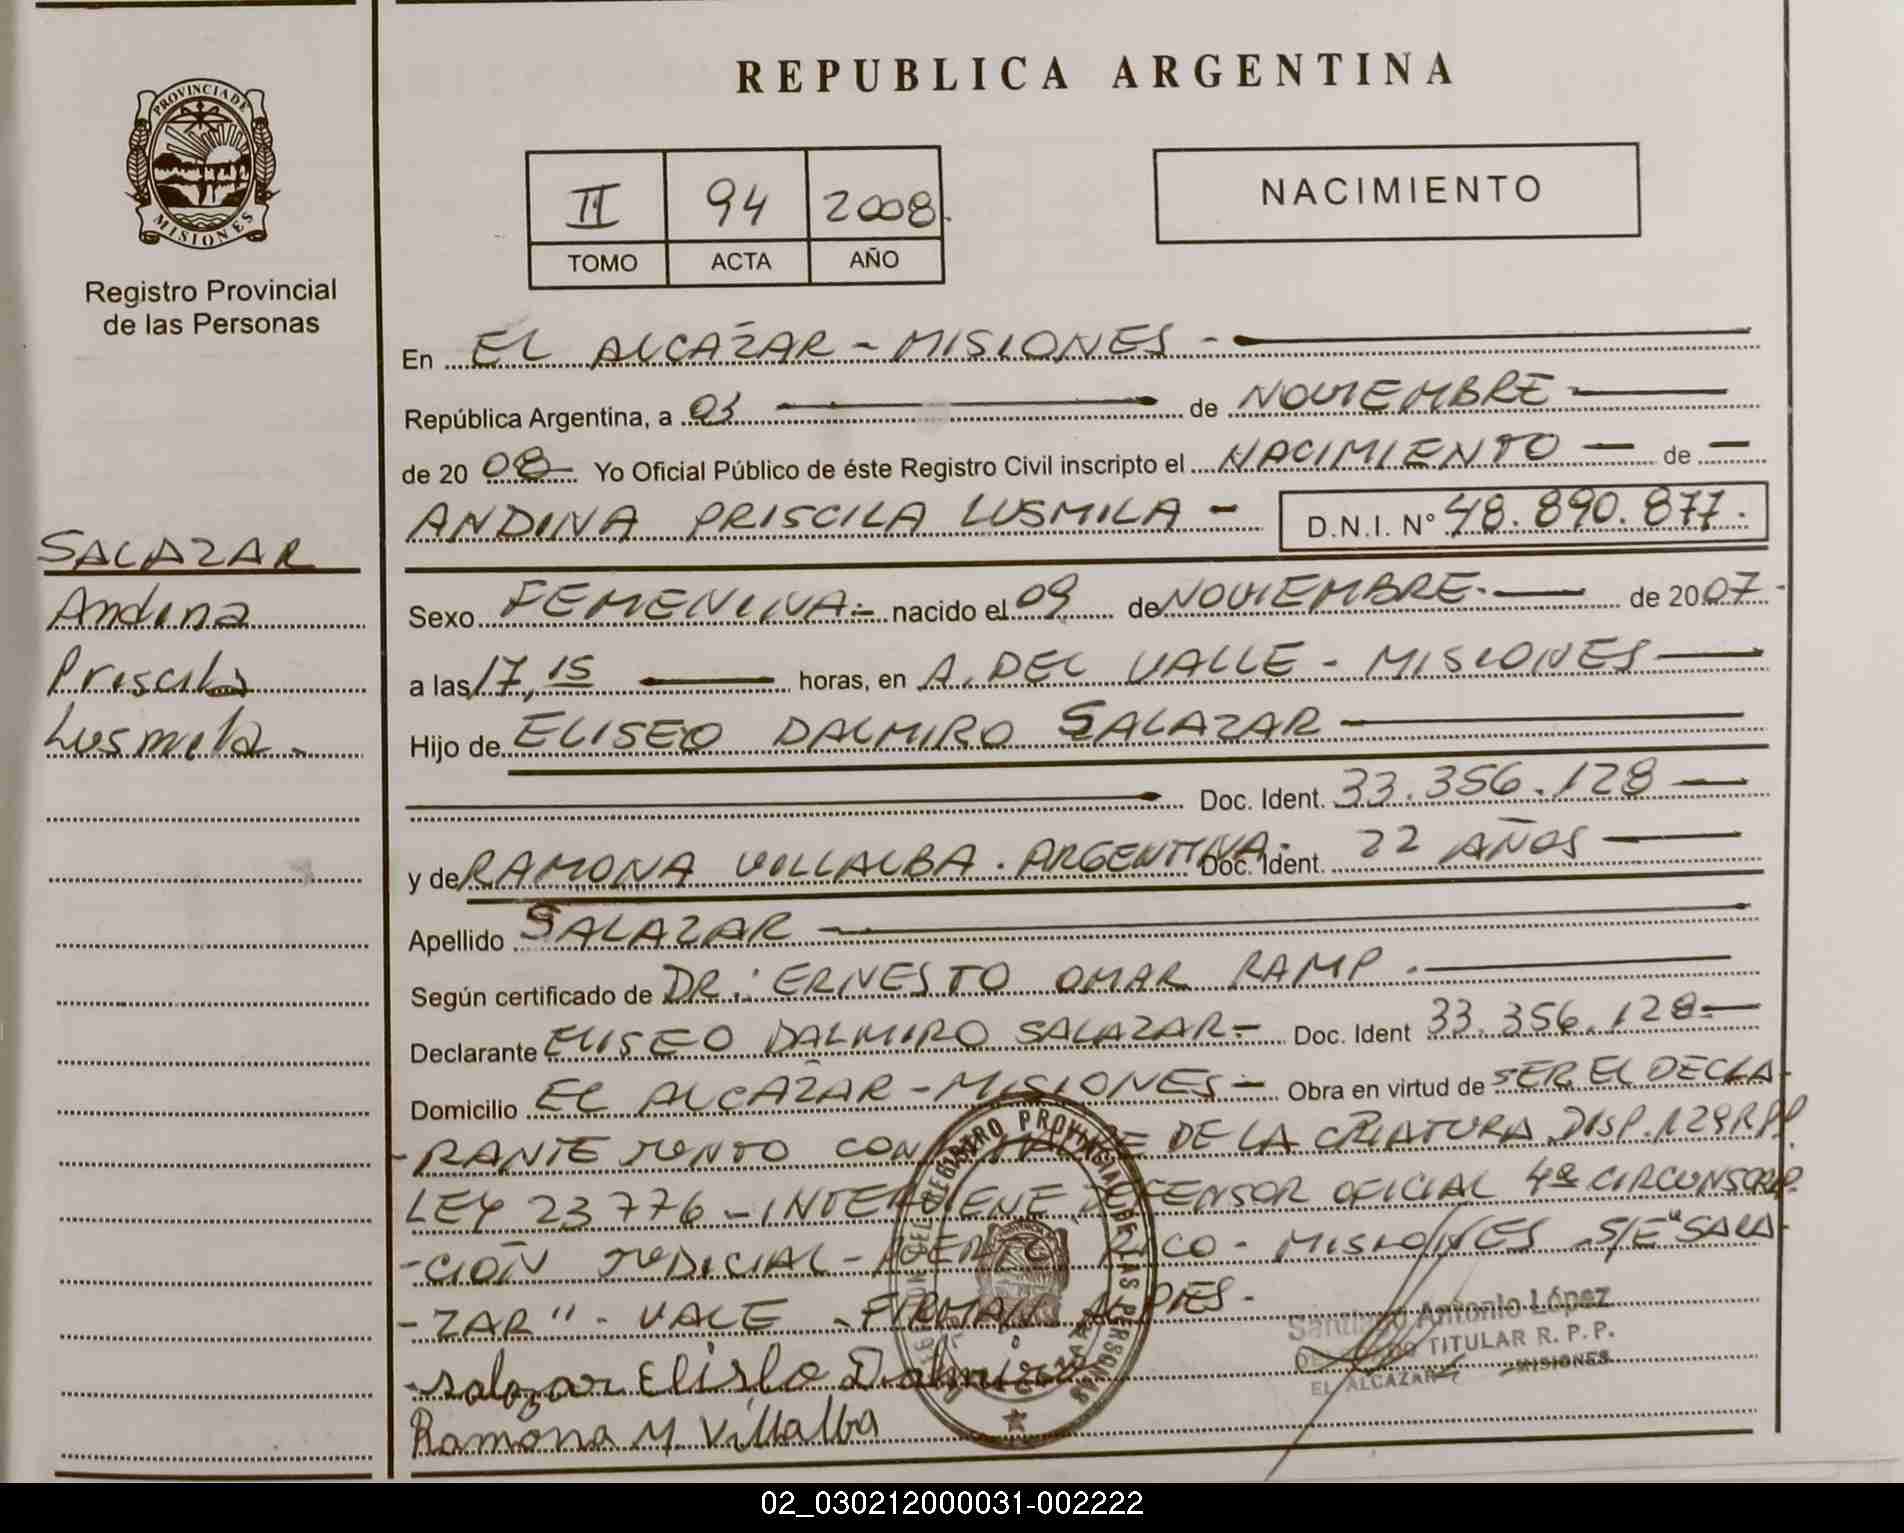 PROVINCIA DE
MISIONES
Registro Provincial
de las Personas
SALAZAR
Andina
Priscila
Lusmila -
REPUBLICA ARGENTINA
II 94 2008.
TOMO ACTA AÑO
NACIMIENTO
En EL ALCAZAR - MISIONES -
República Argentina, a 03 de NOVIEMBRE
de 20 08 Yo Oficial Público de éste Registro Civil inscripto el NACIMIENTO - de -
ANDINA PRISCILA LUSMILA - D.N.I. N° 48.890.877.
Sexo FEMENINA.- nacido el 09 de NOVIEMBRE.- de 2007.-
a las 17,15 horas, en A. DEL VALLE - MISIONES
Hijo de ELISEO DALMIRO SALAZAR
Doc. Ident. 33.356.128
y de RAMONA VILLALBA. ARGENTINA. Doc. Ident. 22 AÑOS
Apellido SALAZAR
Según certificado de DR: ERNESTO OMAR RAMP.
Declarante ELISEO DALMIRO SALAZAR.- Doc. Ident 33.356.128.-
Domicilio EL ALCAZAR - MISIONES.- Obra en virtud de SER EL DECLA-
-RANTE JUNTO CON MADRE DE LA CRIATURA. DISP. 129 RPP.
LEY 23776 - INTERVIENE DEFENSOR OFICIAL 4ª CIRCUNSCRIP-
-CIÓN JUDICIAL - PUERTO RICO - MISIONES S/E "SALA-
-ZAR" - VALE - FIRMAN AL PIES -
Santiago Antonio López
TITULAR R.P.P.
EL ALCAZAR - MISIONES
salazar Eliseo Dalmiro
Ramona M. Villalba
REGISTRO PROVINCIAL DE LAS PERSONAS
02_030212000031-002222